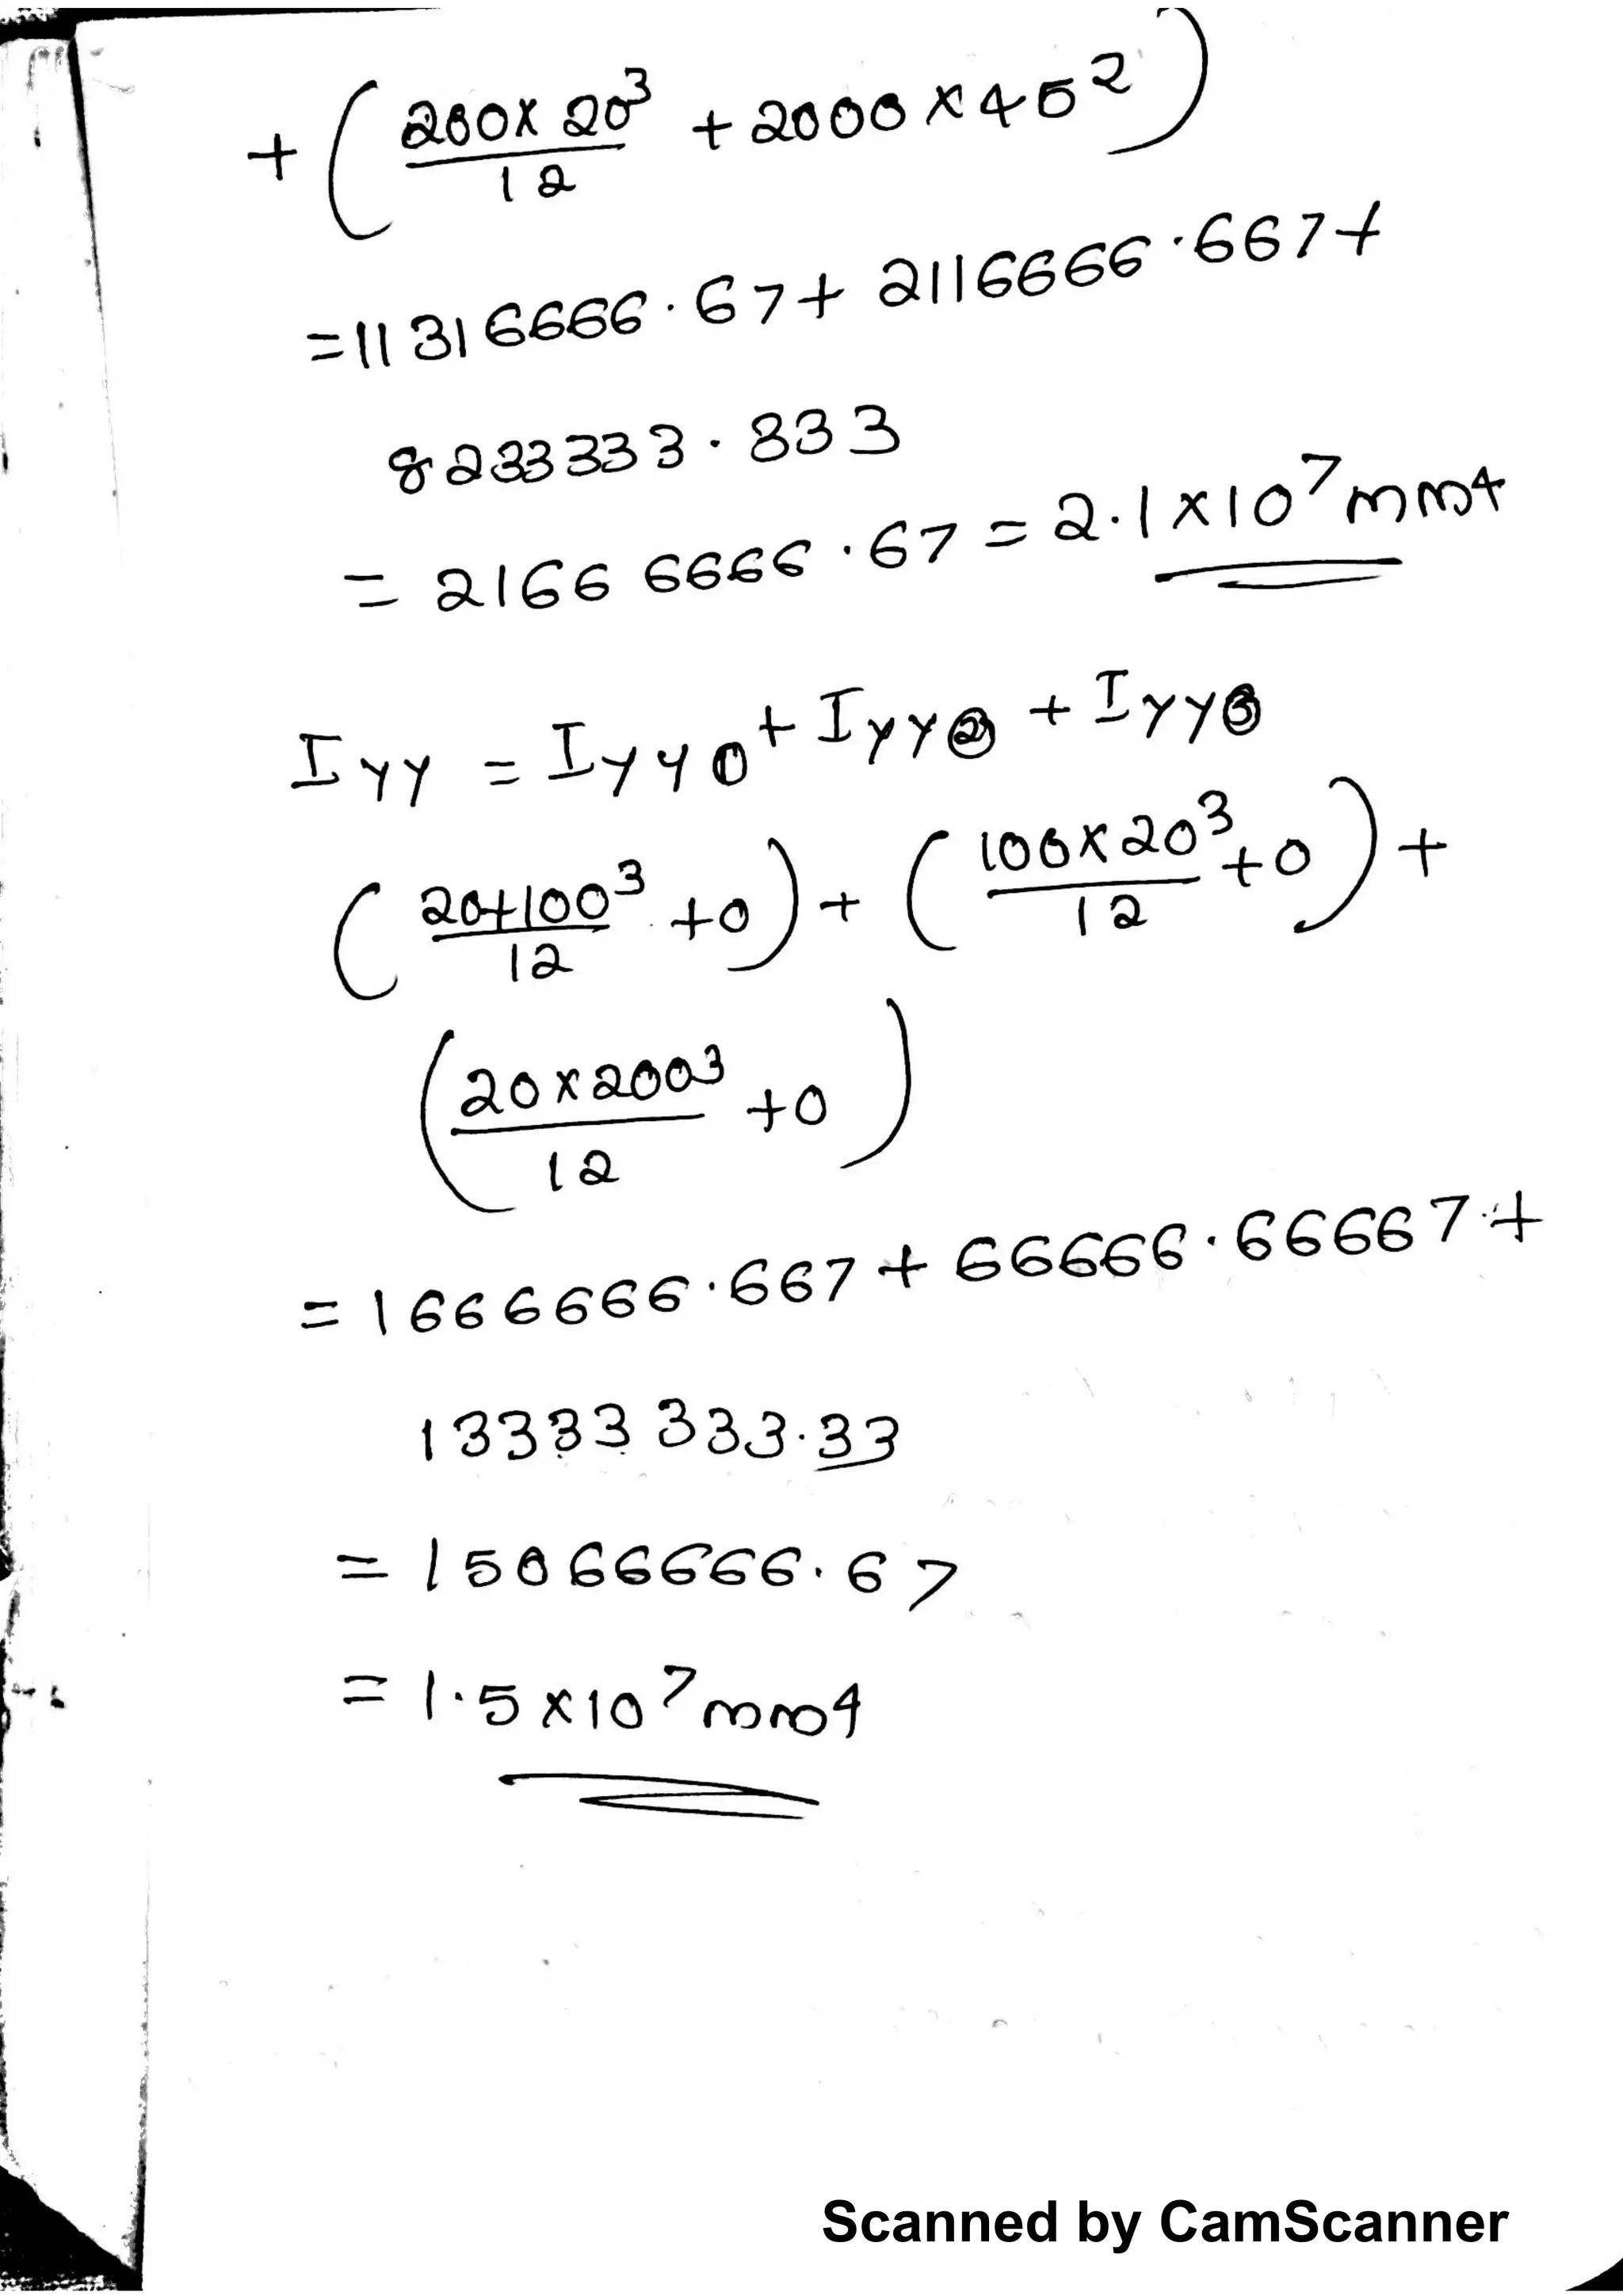 + ( 200 x 20³ / 12 + 2000 x 45² )
= 11316666.67 + 2116666.667 +
8233333.833
= 21666666.67 = 2.1 x 10⁷ mm4
IYY = IYY① + IYY② + IYY③
( 20+100³ / 12 + 0 ) + ( 100 x 20³ / 12 + 0 ) +
( 20 x 200³ / 12 + 0 )
= 1666666.667 + 66666.66667 +
13333333.33
= 15066666.67
= 1.5 x 10⁷ mm4
Scanned by CamScanner